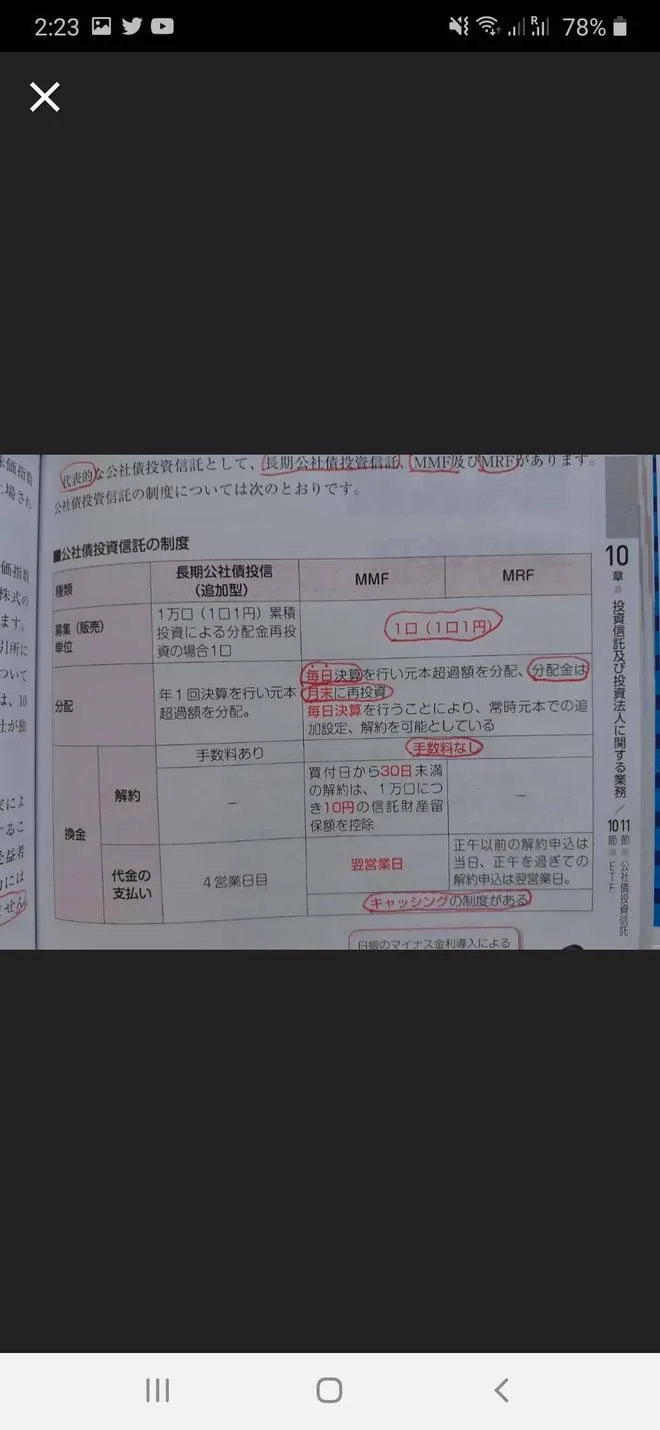 2:23
78%
代表的な公社債投資信託として、長期公社債投資信託、MMF及びMRFがあります。
公社債投資信託の制度については次のとおりです。
■公社債投資信託の制度
種類
長期公社債投信
(追加型)
MMF
MRF
募集(販売)
単位
1万口(1口1円)累積
投資による分配金再投
資の場合1口
1口(1口1円)
分配
年1回決算を行い元本
超過額を分配。
毎日決算を行い元本超過額を分配、分配金は
月末に再投資
毎日決算を行うことにより、常時元本での追
加設定、解約を可能としている
換金
解約
手数料あり
手数料なし
－
買付日から30日未満
の解約は、1万口につ
き10円の信託財産留
保額を控除
－
代金の
支払い
4営業日目
翌営業日
正午以前の解約申込は
当日、正午を過ぎての
解約申込は翌営業日。
キャッシングの制度がある
日銀のマイナス金利導入による
10
章
投資信託及び投資法人に関する業務／
10節 公社債投資信託
11節 ETF
価指数
株式の
ます。
引所に
ついて
は、10
社が独
せん